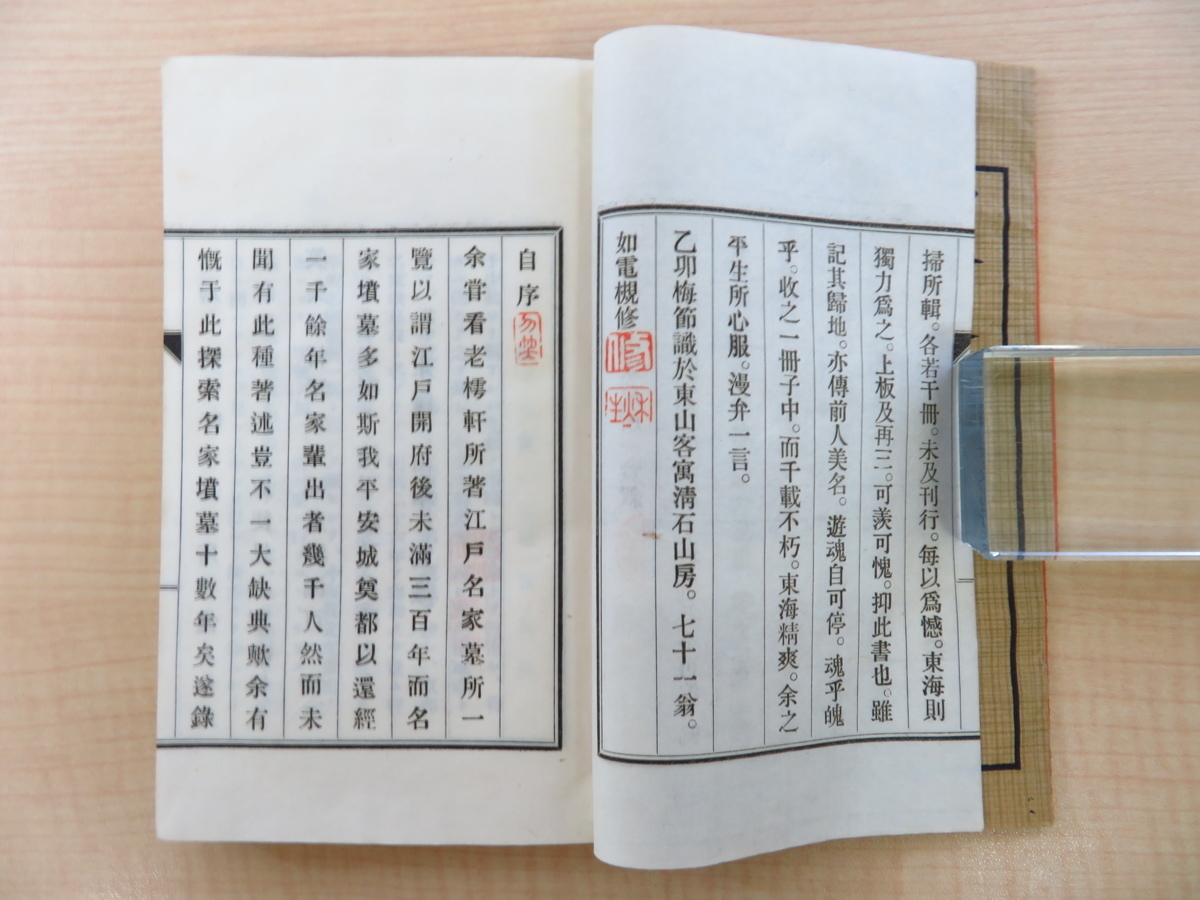 掃所輯。各若干冊。未及刊行。每以爲憾。東海則
獨力爲之。上板及再三。可羨可愧。抑此書也。雖
記其歸地。亦傳前人美名。遊魂自可停。魂乎魄
乎。收之一冊子中。而千載不朽。東海精爽。余之
平生所心服。漫弁一言。
乙卯梅節識於東山客寓淸石山房。七十一翁。
如電槻修
自序
余甞看老樗軒所著江戶名家墓所一
覽以謂江戶開府後未滿三百年而名
家墳墓多如斯我平安城奠都以還經
一千餘年名家輩出者幾千人然而未
聞有此種著述豈不一大缺典歟余有
慨于此探索名家墳墓十數年矣遂錄